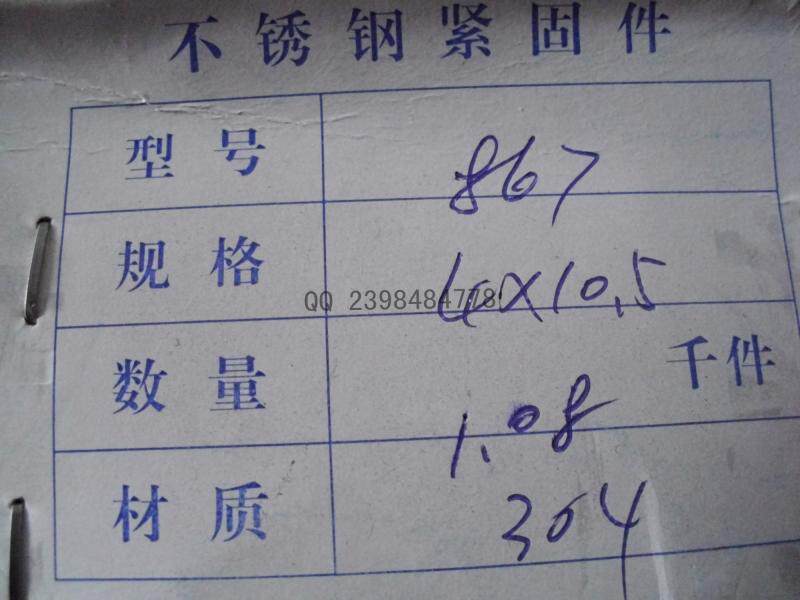 不锈钢紧固件
型号 867
规格 4X10.5
QQ 2398484778
数量 1.08 千件
材质 304